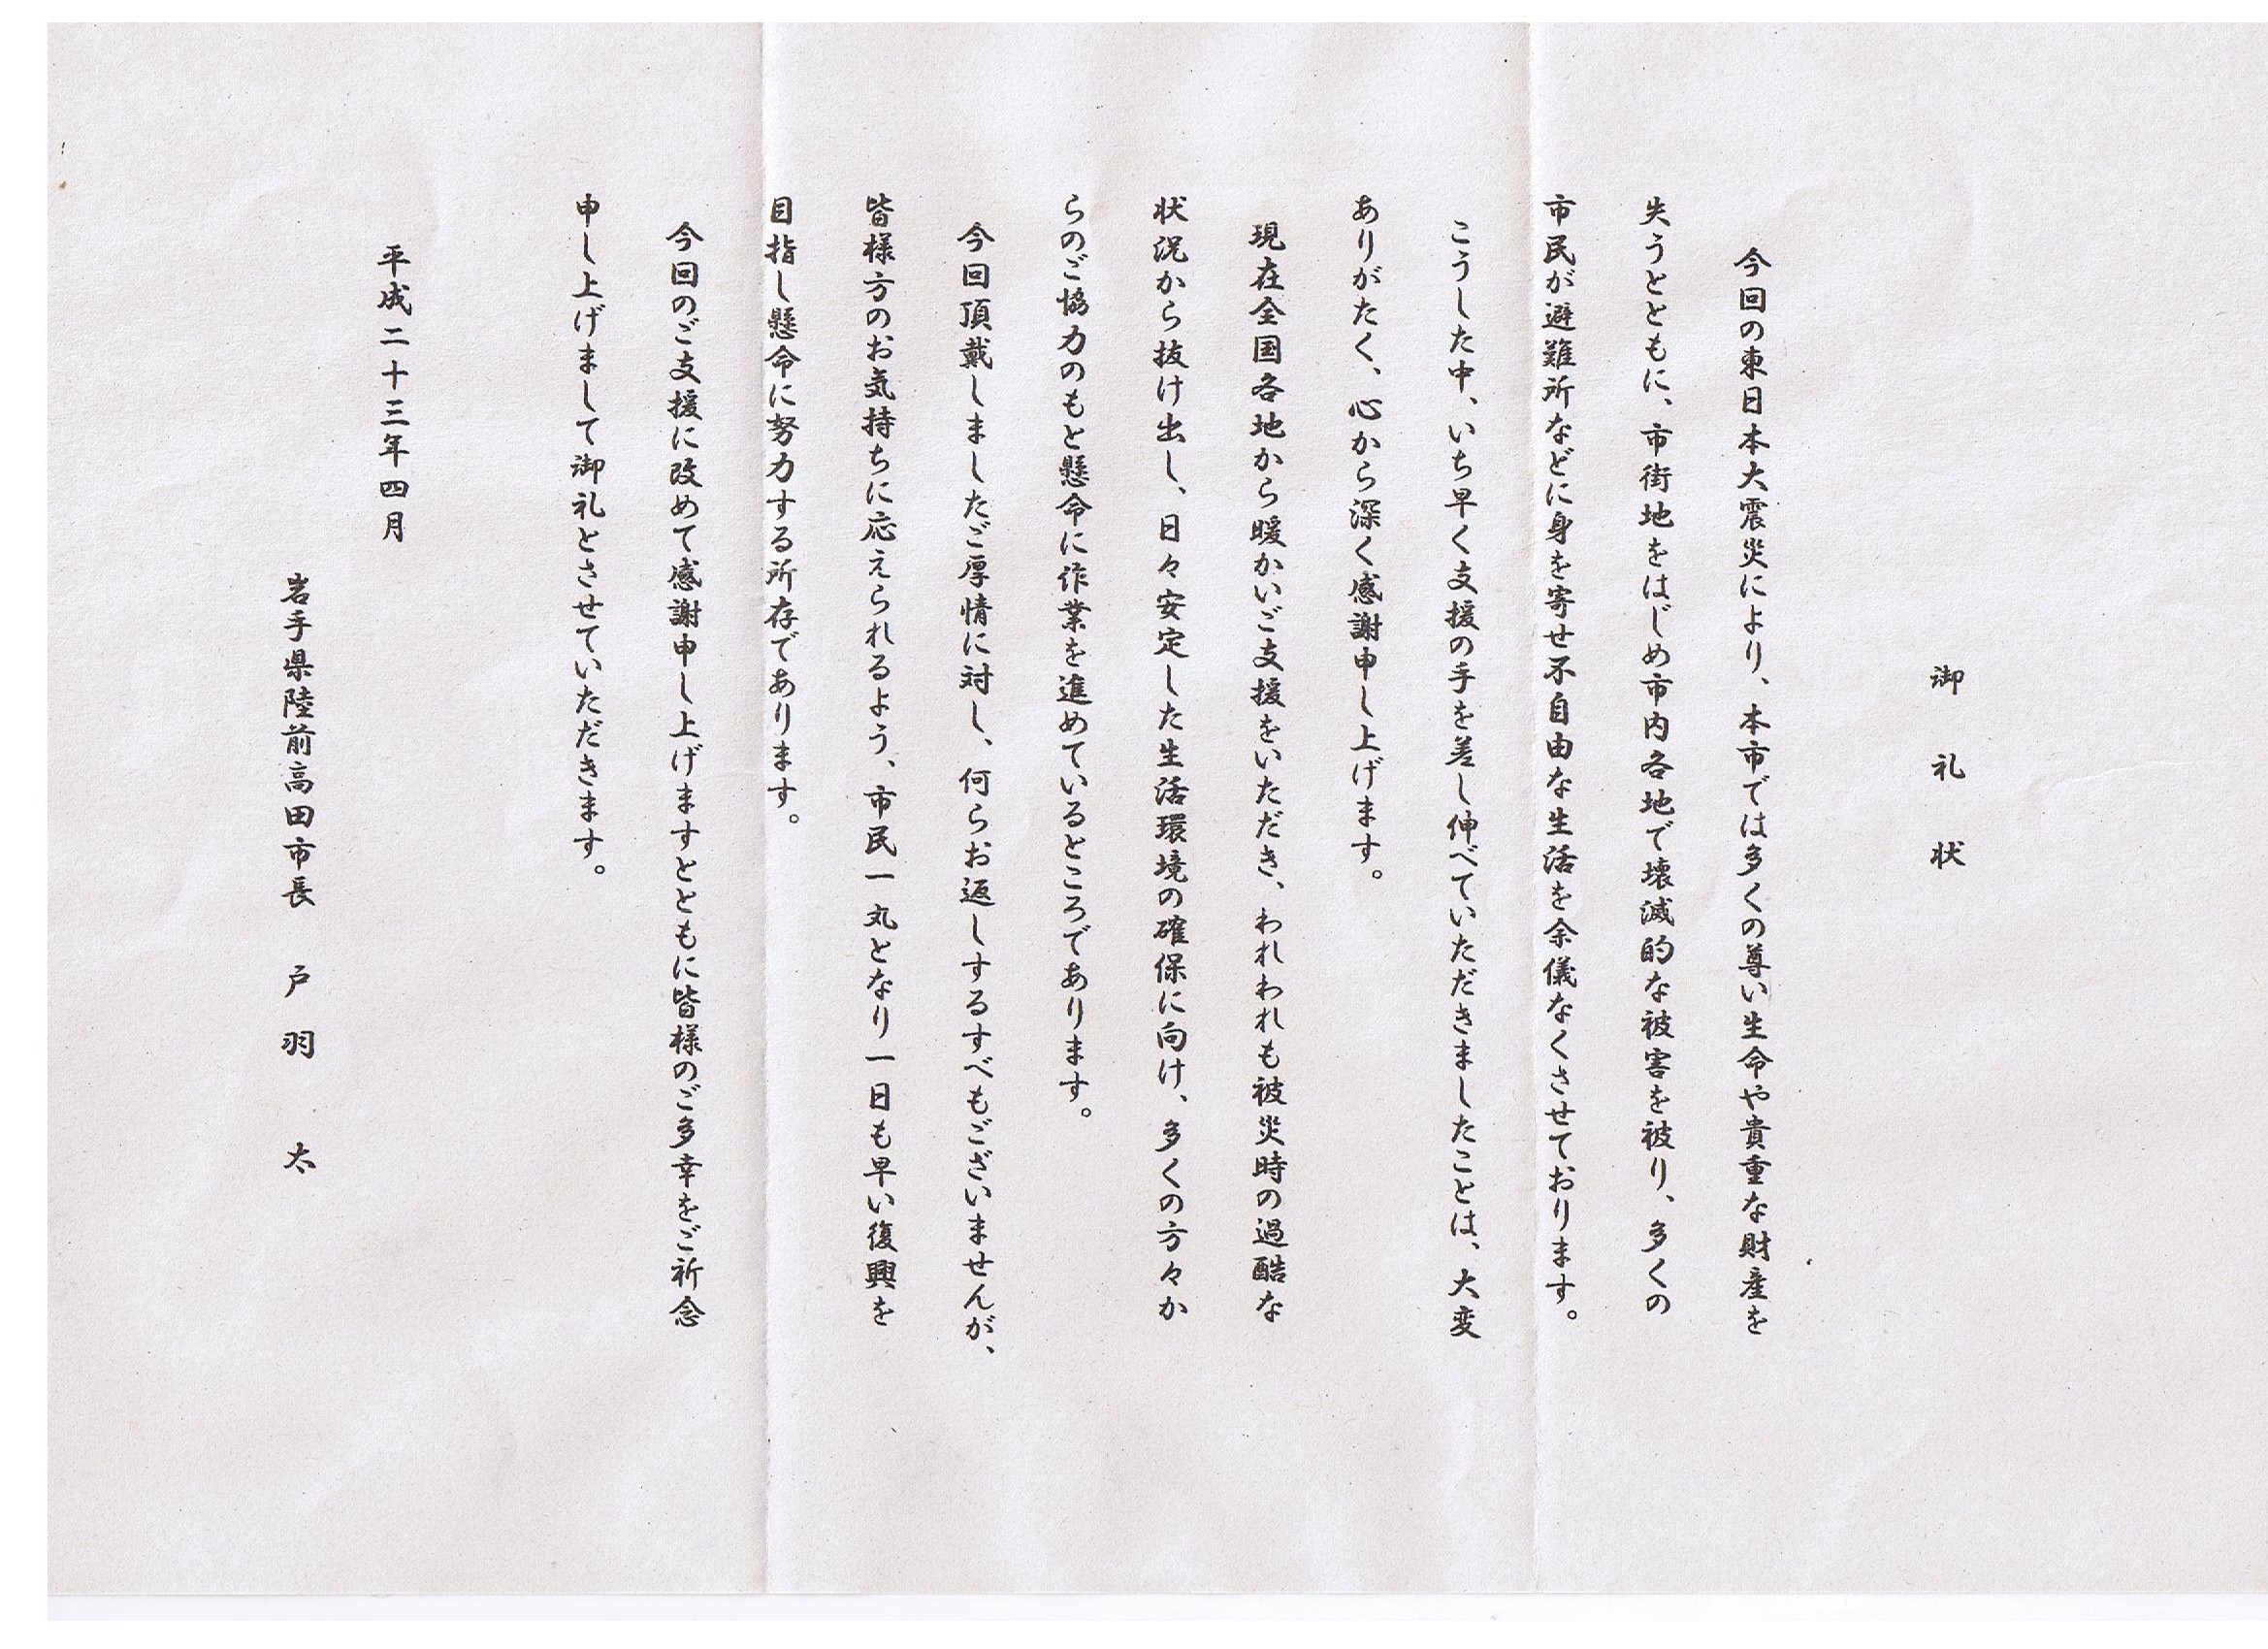 御礼状
今回の東日本大震災により、本市では多くの尊い生命や貴重な財産を
失うとともに、市街地をはじめ市内各地で壊滅的な被害を被り、多くの
市民が避難所などに身を寄せ不自由な生活を余儀なくさせております。
こうした中、いち早く支援の手を差し伸べていただきましたことは、大変
ありがたく、心から深く感謝申し上げます。
現在全国各地から暖かいご支援をいただき、われわれも被災時の過酷な
状況から抜け出し、日々安定した生活環境の確保に向け、多くの方々か
らのご協力のもと懸命に作業を進めているところであります。
今回頂戴しましたご厚情に対し、何らお返しするすべもございませんが、
皆様方のお気持ちに応えられるよう、市民一丸となり一日も早い復興を
目指し懸命に努力する所存であります。
今回のご支援に改めて感謝申し上げますとともに皆様のご多幸をご祈念
申し上げまして御礼とさせていただきます。
平成二十三年四月
岩手県陸前高田市長　戸羽　太